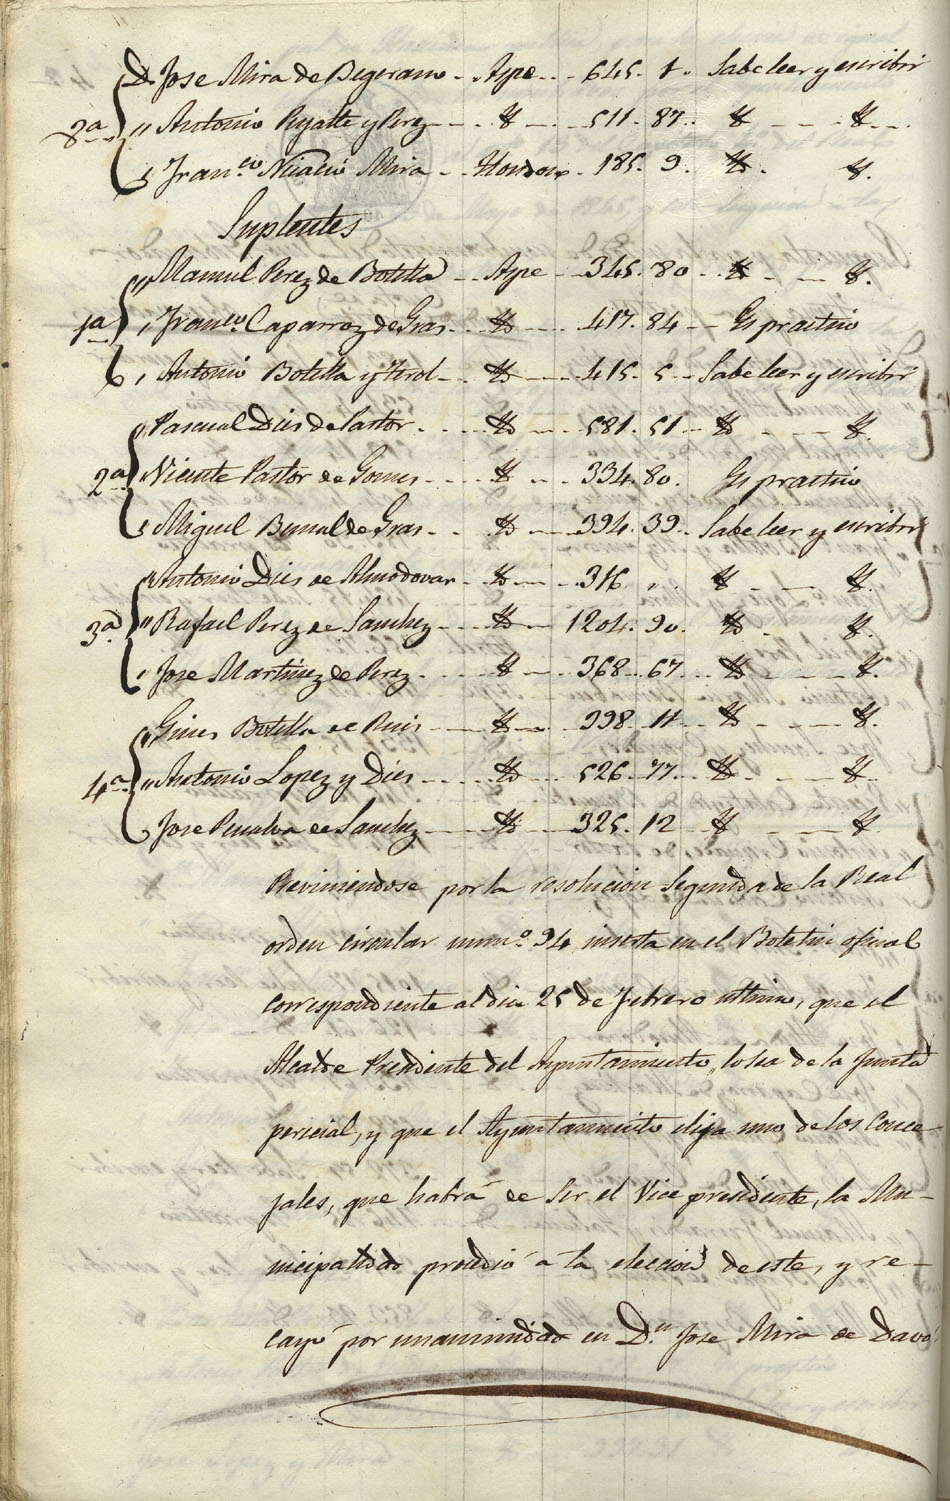 D. Jose Mira de Begerano - Aspe - 645. 1. Sabe leer y escribir
8ª " Antonio Pujalte y Perez - Id - 511. 87. Id - Id.
" Fran.co Mira - Hondon - 185. 9. Id. Id.
Suplentes
" Manuel Perez de Botella - Aspe - 345. 80 - Id - Id.
1ª " Fran.co Caparroz de Gras - Id - 417. 84 - Es practico
" Antonio Botella y Terol - Id - 415. 5 - Sabe leer y escribir
" Pascual Dies de Pastor - Id - 581. 51 - Id - Id.
2ª " Vicente Pastor de Gomis - Id - 334. 80. Es practico
" Miguel Bernal de Gras - Id - 394. 39. Sabe leer y escribir
" Antonio Dies de Almodovar - Id - 316 " Id - Id.
3ª " Rafael Perez de Sanchez - Id - 1204. 90. Id. Id.
" Jose Martinez de Perez - Id - 368. 67 - Id - Id.
" Gines Botella de Ruis - Id - 398. 11 - Id - Id.
4ª " Antonio Lopez y Dies - Id - 526. 77. Id - Id.
" Jose Penalva de Sanchez - Id - 325. 12 Id - Id.
Previniendose por la resolucion segunda de la Real
orden circular num.º 94 inserta en el Boletin oficial
correspondiente al dia 25 de Febrero ultimo, que el
Alcalde Presidente del Ayuntamiento, lo sea de la Junta
pericial, y que el Ayuntamiento elija uno de los Conce-
jales, que habrá de ser el Vice presidente, la Mu-
nicipalidad procedió á la eleccion de este, y re-
cayó por unanimidad en D.n Jose Mira de Davó